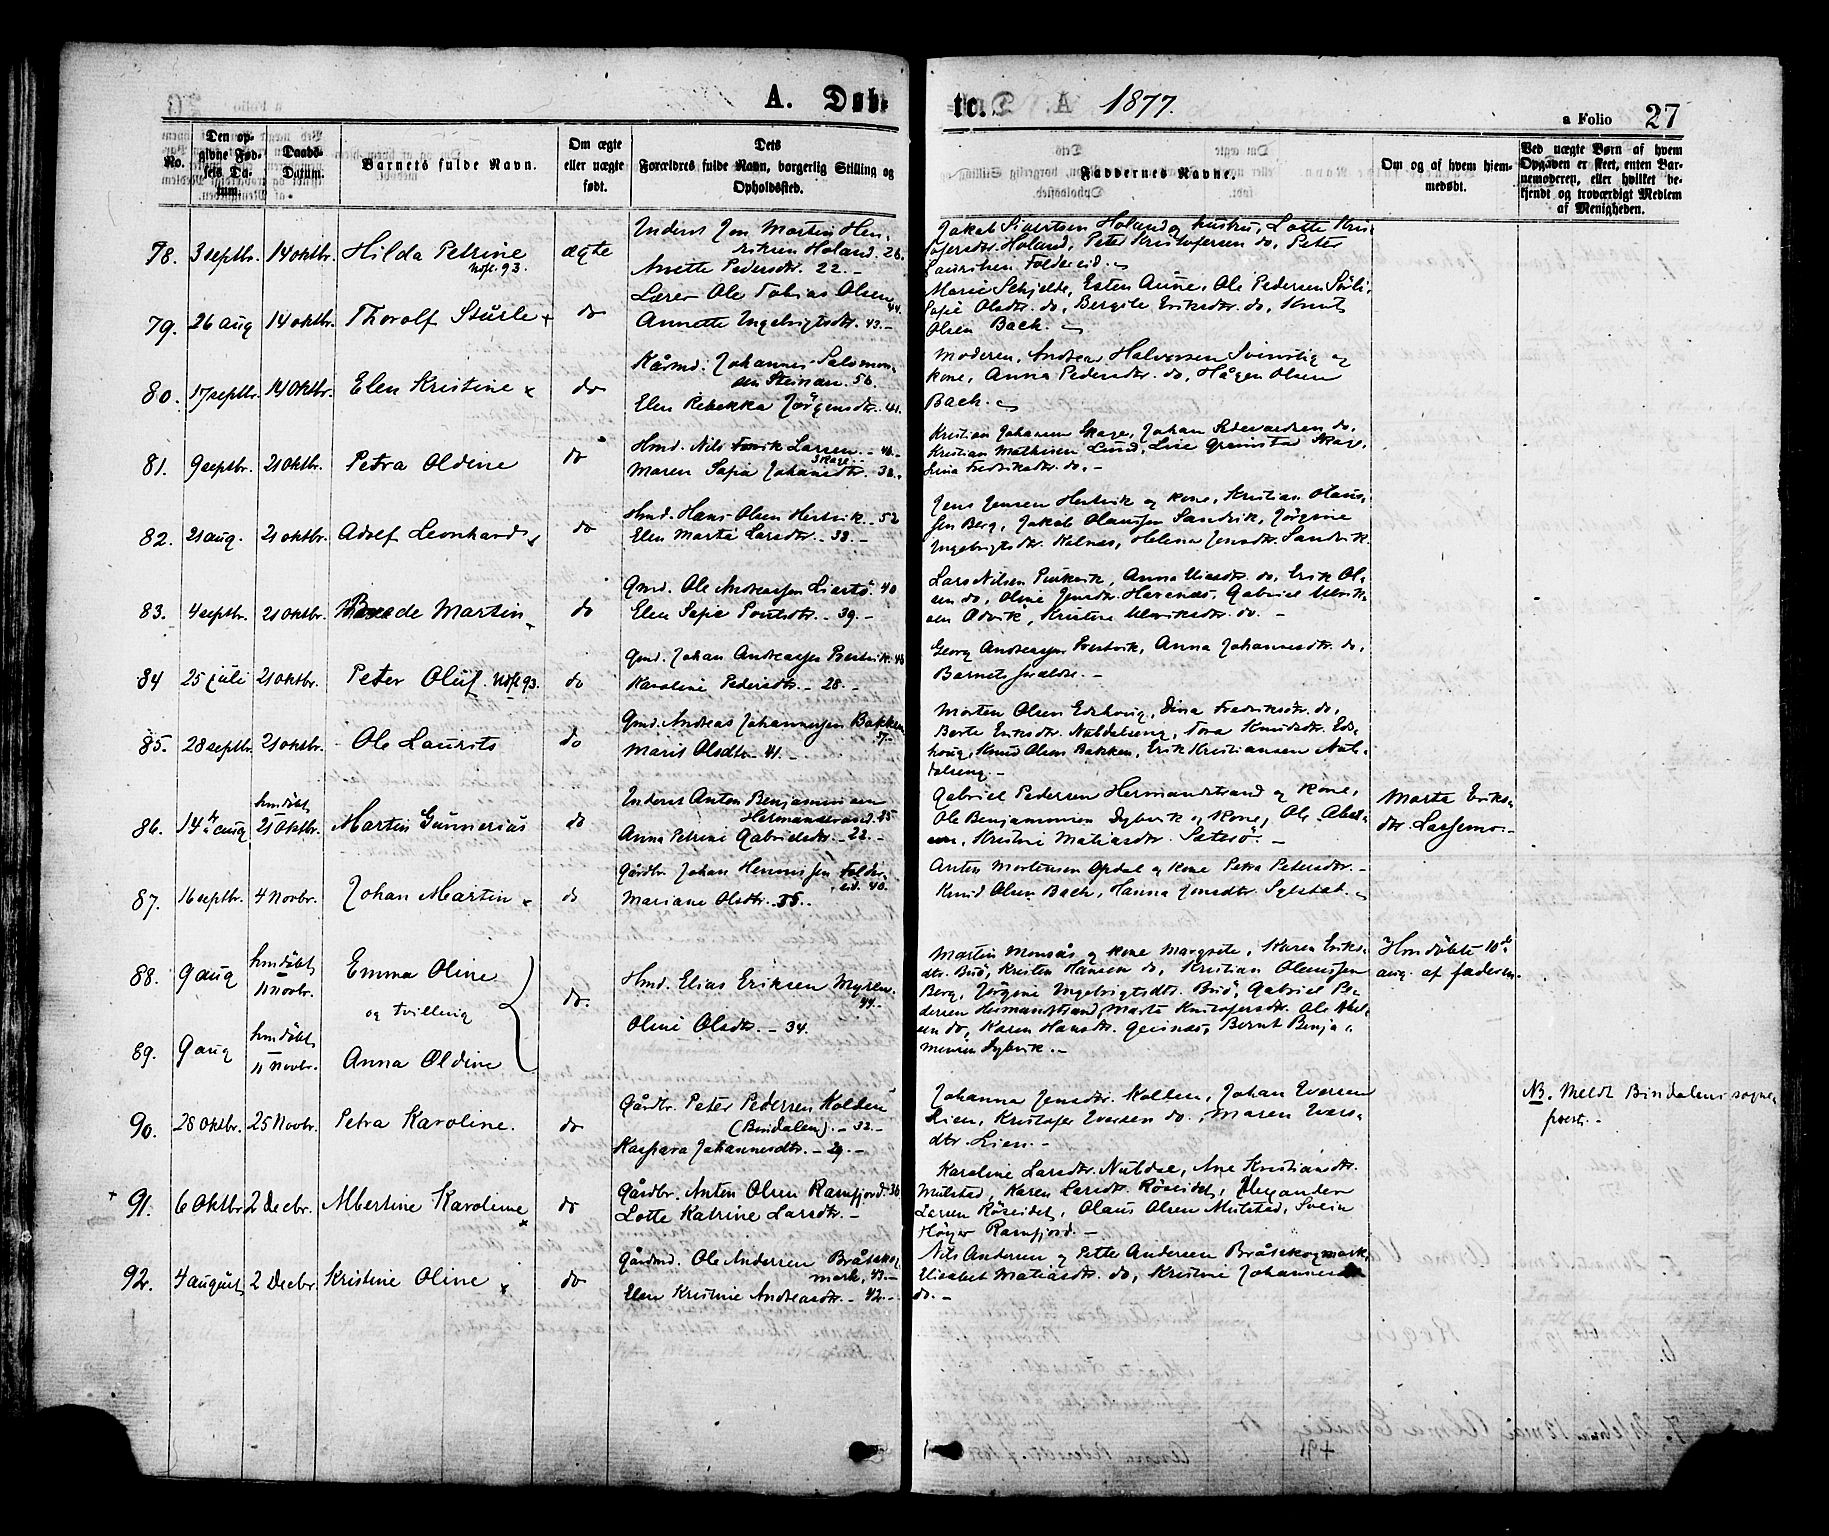 A. Døb-
te. 1877.
a Folio 27
No.
Den op-
givne Fød-
sels Da-
tum.
Daabs-
Datum.
Barnets fulde Navn.
Om ægte
eller uægte
født.
Dets
Forældres fulde Navn, borgerlig Stilling og
Opholdssted.
Faddernes Navne.
Om og af hvem hjem-
medøbt.
Ved uægte Børn af hvem
Opgaven er skeet, enten Bar-
nemoderen, eller hvilket be-
kjendt og troværdigt Medlem
af Menigheden.
78. 3 septbr. 14 oktbr. Hilda Petrine ægte
Inderst Jon Martin Hen-
riksen Holand. 26.
Anette Pedersdtr. 22. –
Jakob Sivertsen Holand og hustru, Lotte Kris-
tofersdtr. Holand, Peter Kristofersen do, Peter
Lauritsen Foldereid. –
79. 26 aug 14 oktbr. Thorolf Sturle do
Lærer Ole Tobias Olsen 44.
Annette Ingebrigtsdtr. 43. –
Marie Schjelde, Esten Aune, Ole Pedersen
Sofie Olsdtr. do, Bergite Eriksdtr. do, Knut
Olsen Bach.
80. 17 septbr. 14 Oktbr. Elen Kristine do
Kårmd. Johannes Salomon-
sen 56.
Elen Rebekka Jörgensdtr. 41.
Moderen, Andreas Halvorsen og
kone, Anna Pedersdtr. do, Hågen Olsen
Bach.
81. 9 septbr. 21 Oktbr. Petra Oldine do
Hmd. Nils Larsen – 40. –
Skage
Maren Sofie Johansdtr. 38.
Kristian Johansen Skage, Johan Edvardsen do,
Kristian Mathisen Lund, Line Skage,
Fredriksdtr. do. –
82. 21 aug. 21 oktbr. Adolf Leonhard do
Hmd. Hans Olsen – 52
Elen Marta Larsdtr. – 38. –
Jens Jensen og kone, Kristian Olaus-
sen Berg, Jakob Olaussen Sandvik, Jörgine
Ingebrigtsdtr. Kalnes, Helena Jensdtr. Sandvik.
83. 4 septbr. 21 Oktbr. Martin do
Gmd. Ole Andreassen 40
Elen Sofie – 39. –
Lars Nilsen Anna do, Erik Ol-
sen do, Oline Jensdtr. Gabriel Ulrik-
sen Odvik, Kristine Ulriksdtr. do. –
84 25 juli 21 oktbr. Peter Oluf do
Gmd. Johan Andreassen
Karoline Pedersdtr. – 28. –
Georg Andreassen Anna Johannesdtr. do,
Barnets forældre. –
85. 28 septbr. 21 oktbr. Ole Laurits do
Gmd. Andreas Johannessen Bakken
37. –
Marit Olsdtr. 41. –
Morten Olsen Edshoug, Dina Fredriksdtr. do,
Berte Eriksdtr. Nubdalseng, Tora Knudsdtr. Eds-
houg, Knud Olsen Bakken, Erik Kristiansen Nub-
dalseng. –
86. 14 aug hmdöbt 21 Oktbr. Martin Gunnerius do
Inderst Anton Benjaminsen
Hermanstrand. 25
Anna Petrine Gabrielsdtr. – 22. –
Gabriel Pedersen Hermandstrand og Kone,
Ole Benjaminsen Dybvik og Kone, Ole Abel-
sen, Kristine Matiasdtr. Setesö. –
Marta Eriks-
dtr. Lassemo. –
87. 16 septbr. 4 Novbr. Johan Martin do
Gårdbr. Johan Henrissen Folder-
eid. 40.
Mariane Olsdtr. 35.
Anton Mortensen Opdal og kone Petra Petersdtr. –
Knud Olsen Bach, Hanna Jonsdtr. Sylstad.
88. 9 aug hmdöbt 11 Novbr. Emma Oline
og tvilling
89. 9 aug hmdöbt 11 Novbr. Anna Oldine do.
Hmd. Elias Eriksen Myren.
44. –
Oline Olsdtr. – 34.
Martin Monsås og kone Margrete, Karen Eriks-
dtr. Buö, Kristen Hansen do, Kristian Olaussen
Berg, Jörgine Ingebrigtsdtr. Buö, Gabriel Pe-
dersen Hermandstrand, Marta Kristofersdtr. Ole Abel-
sen do, Karen Hansdtr. Bernt Benja-
minsen Dybvik. –
Hmdöbte 10de
aug. af faderen.
90. 28 Oktbr. 25 Novbr. Petra Karoline. do
Gårdbr. Peter Pedersen Kolden
(Bindalen). – 32. –
Kaspara Johannesdtr. – 29. –
Johanna Jensdtr. Kolden, Johan Iversen
Lien, Kristofer Iversen do, Maren Ivers-
dtr. Lien. –
NB. Meldt Bindalens sogne-
prest. –
91. 6 Oktbr. 2 Decbr. Albertine Karoline do
Gårdbr. Anton Olsen Ramfjord. 36
Lotte Katrine Larsdtr. –
Karoline Larsdtr. Nubdal, Ane Kristiansdtr.
Mulstad, Karen Larsdtr. Röseidet, Alexander
Larsen Röseidet, Olaus Olsen Mulstad, Svein
Höyer Ramfjord. –
92. 4 august 2 Decbr. Kristine Oline do
Gårdmd. Ole Andersen Bråtskog-
mark, 43. –
Elen Kristine Andreasdtr. – 42. –
Nils Andersen og Petter Andersen Bråtskogmark,
Elisabet Matiasdtr. do, Kristine Johannesdtr.
do. –